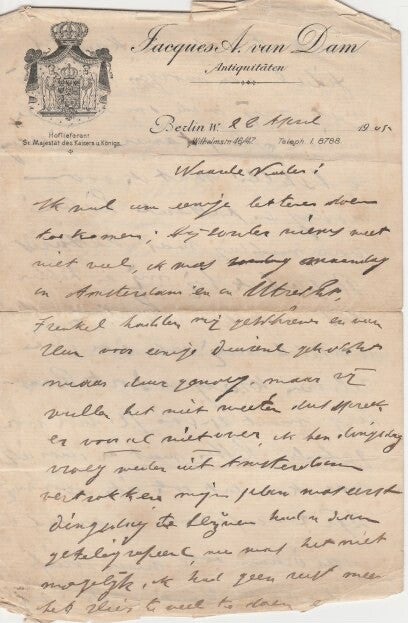 Jacques A. van Dam
Antiquitäten
Hoflieferant
Sr. Majestät des Kaisers u. Königs.
Berlin W. 22 April 1905
Wilhelmstr. 46/47. Teleph. I. 8788
Waarde Vader!
Ik wil u eenige letteren doen
toekomen; bijzonder nieuws weet
niet veel, ik was maandag
in Amsterdam en in Utrecht,
Frenkel geschreven en van
hem voor eenige duizend
maar duur genoeg, maar zij
willen het niet weten dus spreek
er vooral niet over, ik ben dingsdag
vroeg weder uit Amsterdam
vertrokken mijn plan was eerst
dingsdag te blijven had u dan
nu was het niet
mogelijk, ik had geen rust meer
heb hier te veel te doen